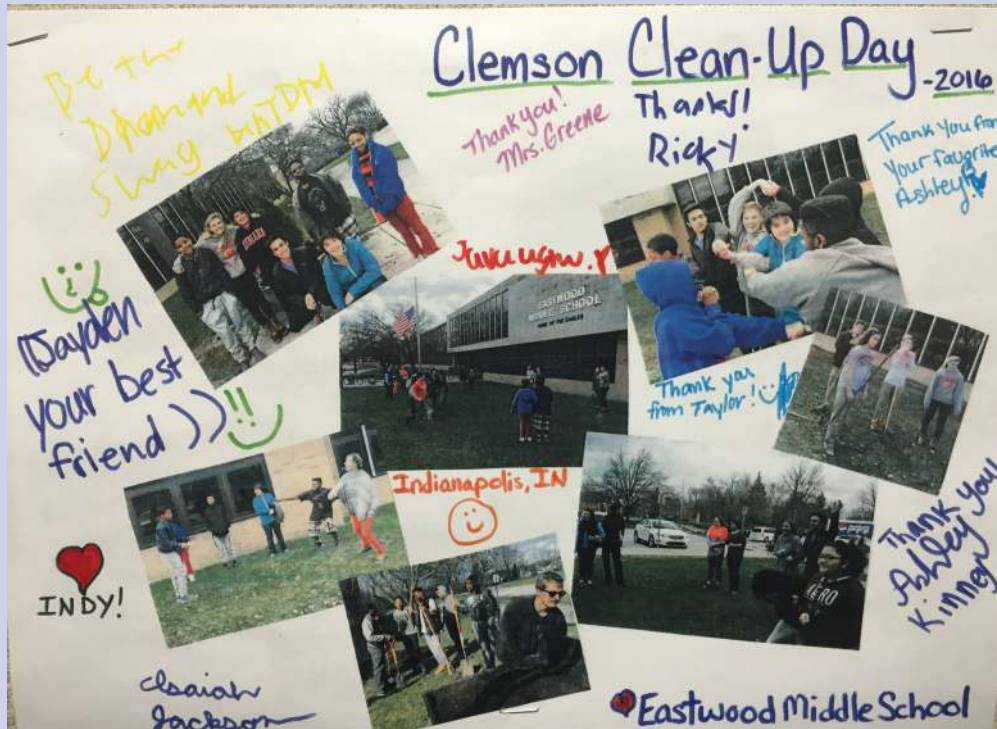 Clemson Clean-Up Day -2016
Thank you!
Mrs. Greene
Thanks!!
Ricky
Thank you from
your favorite
Ashley!!
Swag
EASTWOOD
MIDDLE SCHOOL
HOME OF THE EAGLES
INDIANA
((Jayden
your best
friend))!!
Thank you
from Taylor!
Indianapolis, IN
INDY!
AERO
Thank you
Ashley
Kinner
Isaiah
Jackson
Eastwood Middle School